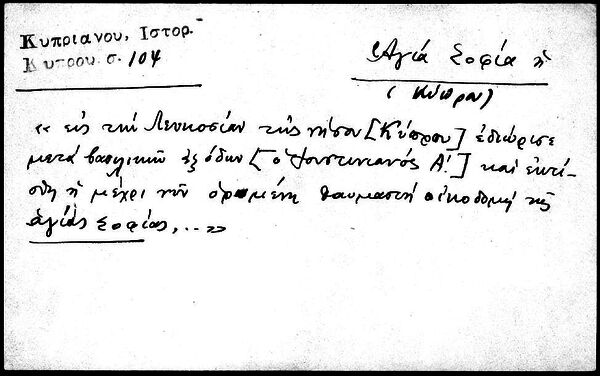 Κυπριανου, Ιστορ.
Κυπρου. σ. 104
Ἁγιά Σοφία ἡ
(Κύπρου)
« εἰς τὴν Λευκοσίαν τῆς νήσου [Κύπρου] ἐδιώρισε
μετὰ βασιλικῶν ἐξόδων [ὁ Ἰουστινιανός Α!] καὶ ἐκτί-
σθη ἡ μέχρι νῦν ὁρωμένη θαυμαστὴ οἰκοδομὴ τῆς
ἁγίας Σοφίας,..»